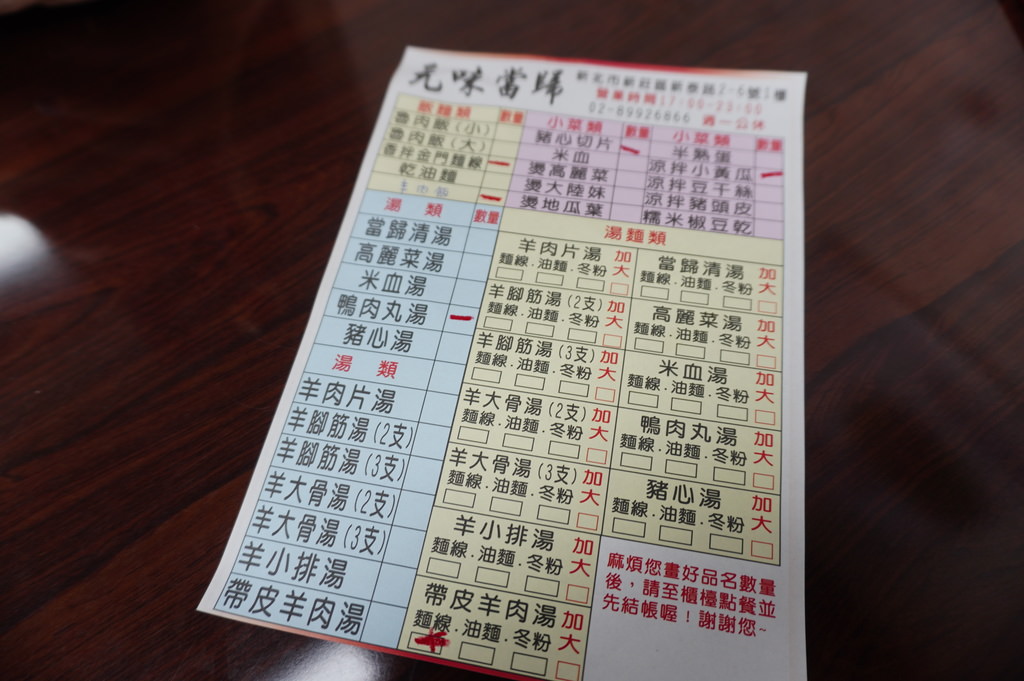 元味當歸
新北市新莊區新泰路2-6號1樓
營業時間17:00-23:00
02-89926866 週一公休
飯麵類 數量
魯肉飯(小)
魯肉飯(大)
香拌金門麵線
乾油麵
羊肉飯
小菜類 數量
豬心切片
米血
燙高麗菜
燙大陸妹
燙地瓜葉
小菜類 數量
半熟蛋
涼拌小黃瓜
涼拌豆干絲
涼拌豬頭皮
糯米椒豆乾
湯類 數量
當歸清湯
高麗菜湯
米血湯
鴨肉丸湯
豬心湯
湯類
羊肉片湯
羊腳筋湯(2支)
羊腳筋湯(3支)
羊大骨湯(2支)
羊大骨湯(3支)
羊小排湯
帶皮羊肉湯
湯麵類
羊肉片湯 加大
麵線.油麵.冬粉
羊腳筋湯(2支) 加大
麵線.油麵.冬粉
羊腳筋湯(3支) 加大
麵線.油麵.冬粉
羊大骨湯(2支) 加大
麵線.油麵.冬粉
羊大骨湯(3支) 加大
麵線.油麵.冬粉
羊小排湯 加大
麵線.油麵.冬粉
帶皮羊肉湯 加大
麵線.油麵.冬粉
當歸清湯 加大
麵線.油麵.冬粉
高麗菜湯 加大
麵線.油麵.冬粉
米血湯 加大
麵線.油麵.冬粉
鴨肉丸湯 加大
麵線.油麵.冬粉
豬心湯 加大
麵線.油麵.冬粉
麻煩您畫好品名數量
後，請至櫃檯點餐並
先結帳喔！謝謝您~